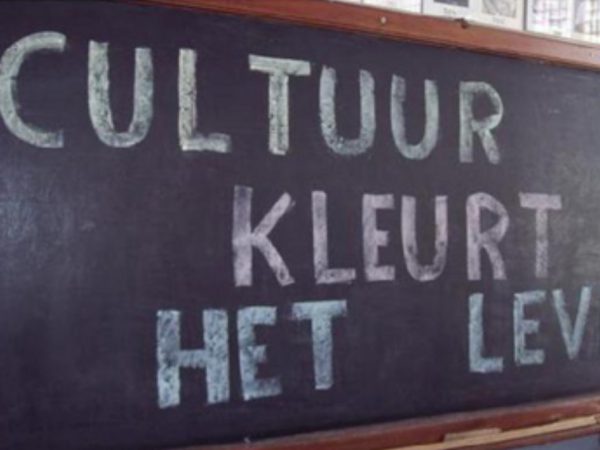 CULTUUR
KLEURT
HET LEV